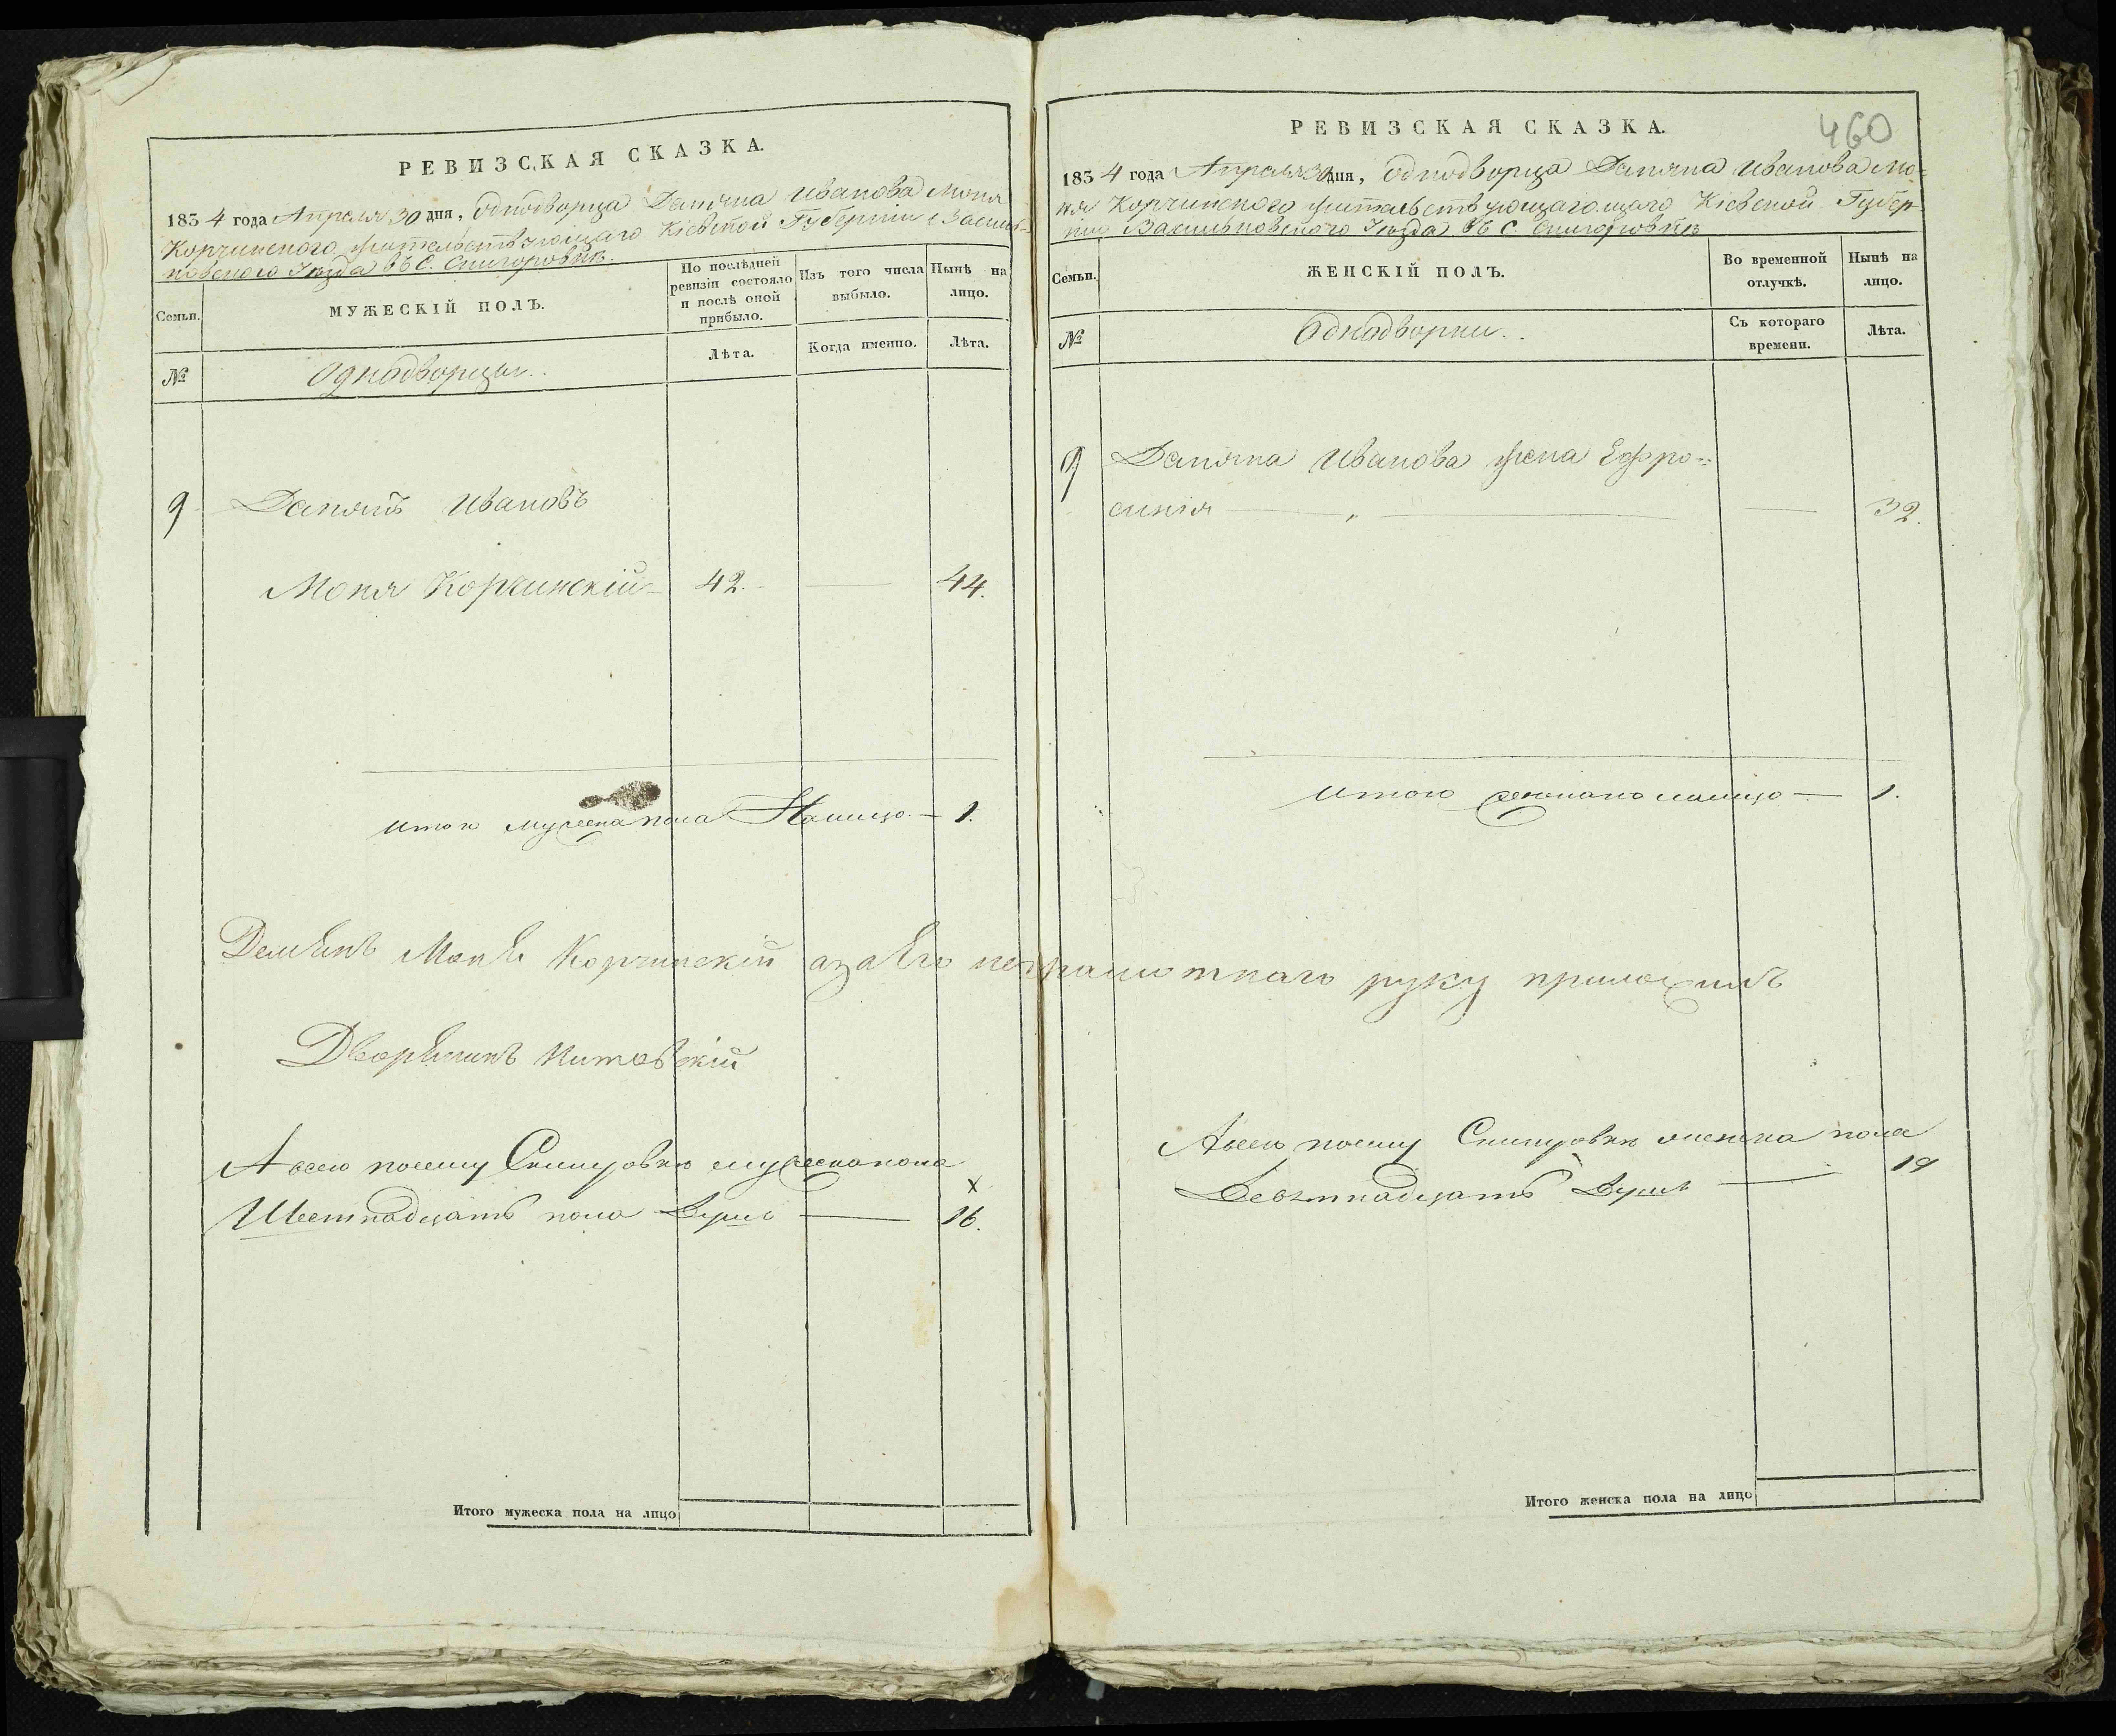 РЕВИЗСКАЯ СКАЗКА.
1834 года Апреля 30 дня, Однодворца Дамяна Иванова Мокя
Корчинского жительствующаго Кіевской Губерніи и Василь-
ковского Уѣзда въ С. Снигоровкѣ.
Семьи.
МУЖЕСКІЙ ПОЛЪ.
По послѣдней ревизіи состояло и послѣ оной прибыло.
Изъ того числа выбыло.
Нынѣ на лицо.
№
Однодворцы.
Лѣта.
Когда именно.
Лѣта.
9 Дамянъ Ивановъ
Мокя Корчинскій 42. — 44.
Итого мужеска пола Налицо — 1.
Демьянъ Мокя Корчинскій а за Его неграмотнаго руку приложилъ
Дворянинъ
А всего посему Снигуровки мужеска пола
х
Шестнадцать пола Душъ — 16.
Итого мужеска пола на лицо
460
РЕВИЗСКАЯ СКАЗКА.
1834 года Апреля 30 дня, Однодворца Дамяна Иванова Мо-
кя Корчинского жительствующаго Кіевской Губер
ніи Васильковского Уѣзда въ С Снигоровкѣ
Семьи.
ЖЕНСКІЙ ПОЛЪ.
Во временной отлучкѣ.
Нынѣ на лицо.
№
Однодворки.
Съ котораго времени.
Лѣта.
9 Дамяна Иванова жена Ефро-
синія — " — — 32.
Итого женска налицо — 1.
А всего посему Снигуровки женска пола
Девятнадцать Душъ — 19
Итого женска пола на лицо